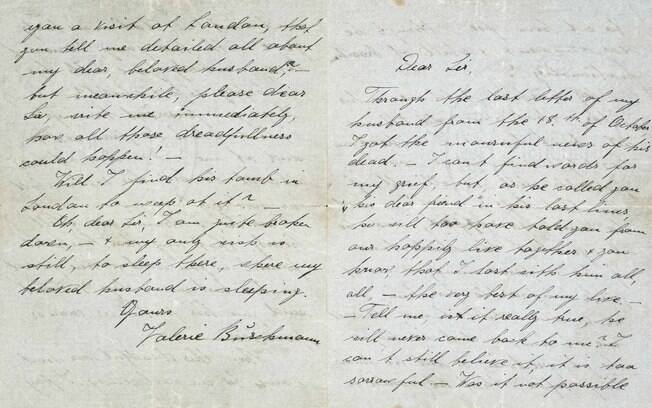 Dear Sir,
Through the last letter of my
husband from the 18.th of October
I got the mournful news of his
dead. – I can't find words for
my grief, but, as he called you
his dear friend in his last lines,
so will too have told you from
our happily live together & you
know that I lost with him all,
all – the very best of my live. –
– Tell me, is it really true, he
will never come back to me? I
can't still believe it, it is too
sorrowful – Was it not possible
you a visit at London, that
you tell me detailed all about
my dear, beloved husband? –
but meanwhile, please dear
Sir, write me immediately,
how all those dreadfullness
could happen! –
Will I find his tomb in
London to weep at it? –
Oh dear Sir, I am quite broken
down, – & my only wish is
still, to sleep there, where my
beloved husband is sleeping.
Yours
Valerie Buschmann